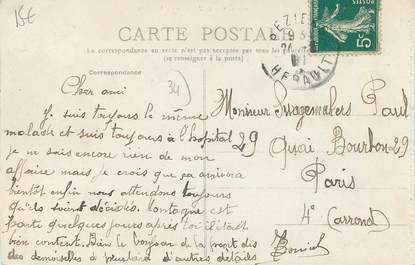 15€
CARTE POSTALE
La correspondance au recto n'est pas acceptée par tous les pays
(se renseigner à la poste)
Correspondance
34
BEZIERS
HERAULT
POSTES
5c
Cher ami
Je suis toujours le même
malade et suis toujours à l'hopital
je ne sais encore rien de mon
affaire mais je crois que ça arrivera
bientot enfin nous attendons toujours
qu'ils soient décidés.
parti quelques jours après
bien content. Bien le bonjour de la part des
des demoiselles à d'autres détails
Monsieur Paul
29 Quai Bourbon 29
Paris
4e (arrond)